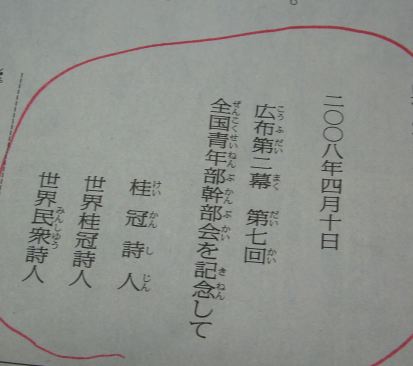 二〇〇八年四月十日
広布第二幕　第七回
全国青年部幹部会を記念して
桂冠詩人
世界桂冠詩人
世界民衆詩人